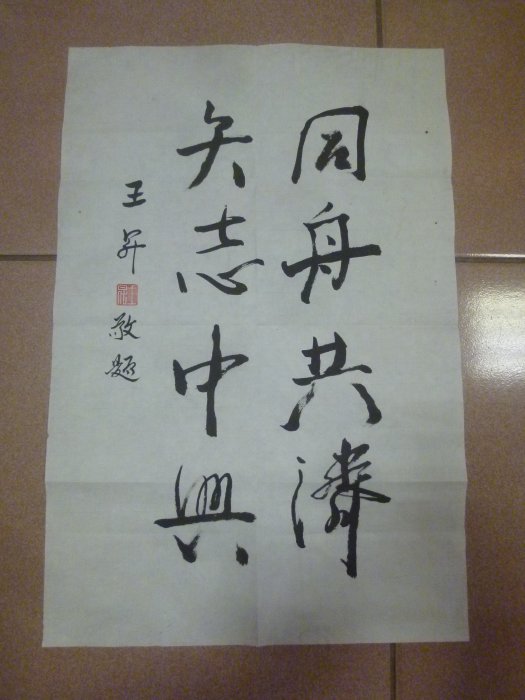 同舟共濟
矢志中興
王昇敬題